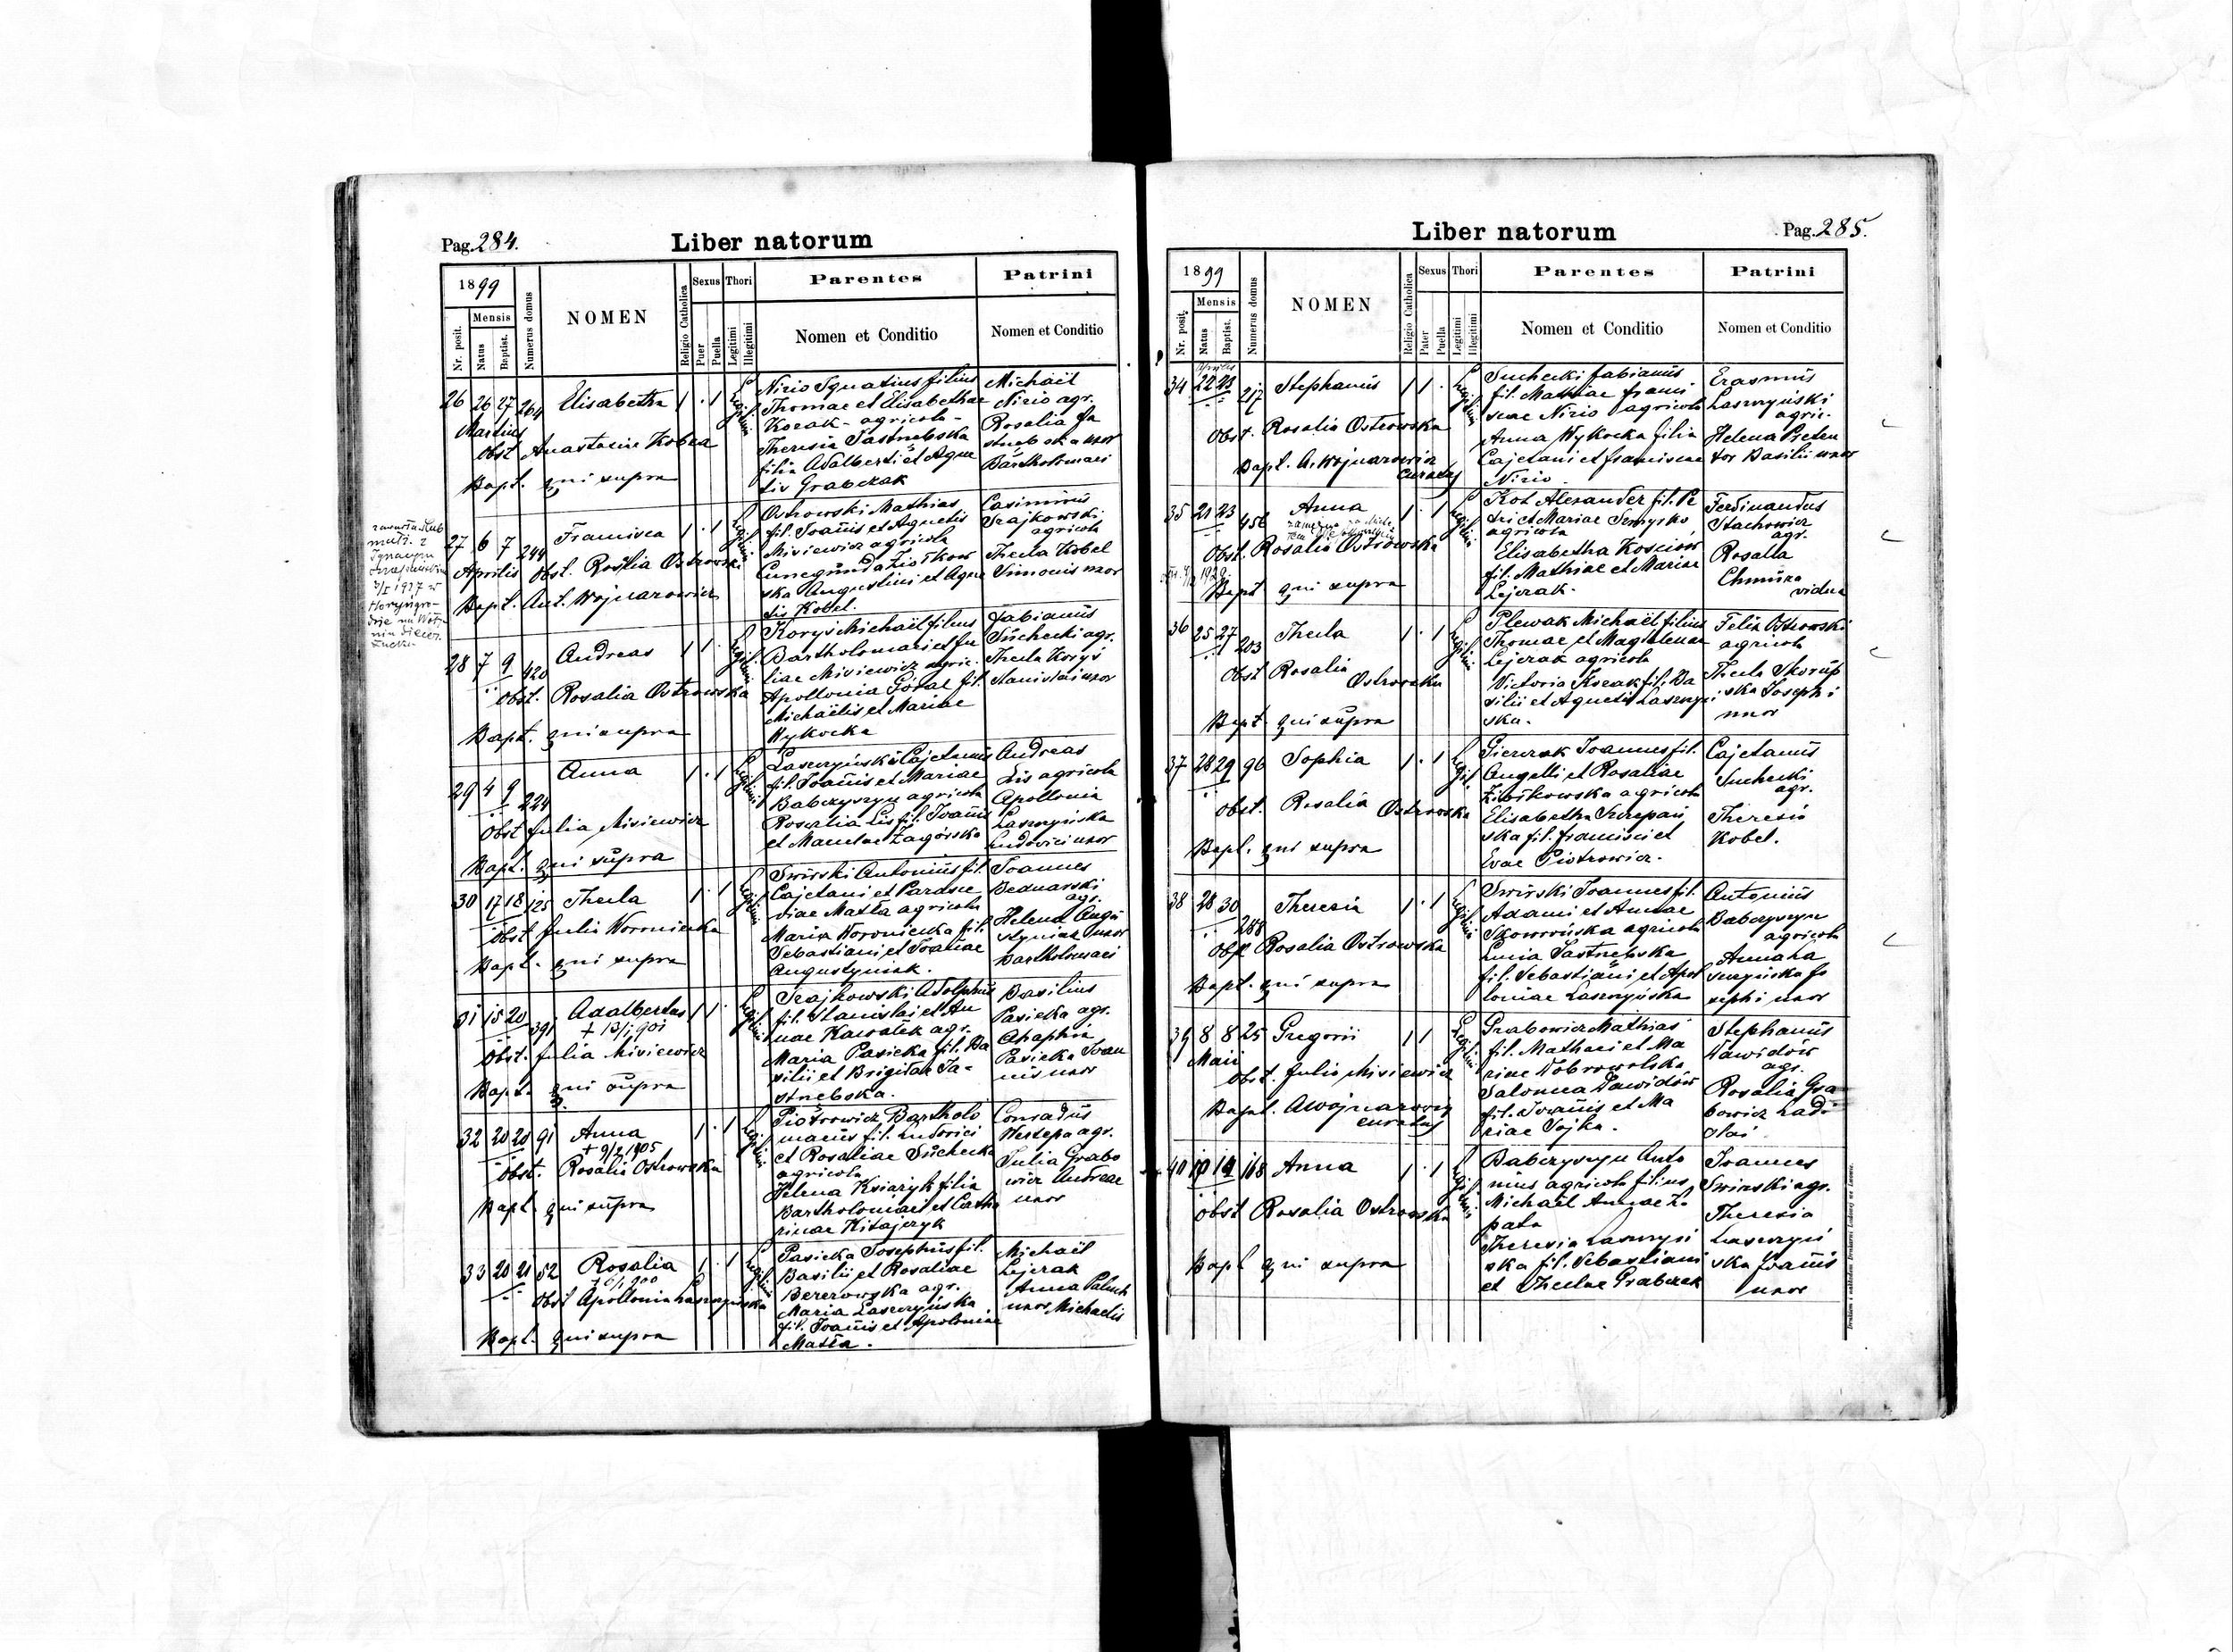 Pag. 284.
Liber natorum
1899
Nr. posit.
Mensis
Natus
Baptist.
Numerus domus
NOMEN
Religio Catholica
Sexus
Puer
Puella
Thori
Legitimi
Illegitimi
Parentes
Nomen et Conditio
Patrini
Nomen et Conditio
26 26 27 264 Elisabetha 1 . 1
Martius
Obst Anastasia
Bapt. qui supra
Nizio Ignatius filius
Thomae et Elisabethae
Kozak - agricola -
Theresia Jastrzebska
filia Adalberti et Agne
tis Grabczak
Michaël
Nizio agr.
Rosalia Ja
strzebska uxor
Bartholomaei
27 6 7 244 Francisca 1 . 1
Aprilis Obst. Rosalia Ostrowska
Bapt. Ant. Wojnarowicz
Ostrowski Mathias
fil. Joañis et Agnetis
Misiewicz agricola
Cunegunda Ziołkow
ska Augustini et Agne
tis Kobel.
Casimirus
Trajkowski
agricola
Thecla Kobel
Simonis uxor
28 7 9 420 Andreas 1 1 .
Obst. Rosalia Ostrowska
Bapt. qui supra
Koryś Michaël filius
Bartholomaei et Ju
liae Misiewicz agric.
Apollonia Góral fil.
Michaëlis et Mariae
Wykocka
Fabianus
Suchecki agr.
Thecla Koryś
Stanislai uxor
29 4 9 224 Anna 1 . 1
Obst Julia Misiewicz
Bapt. qui supra
Laszczyński Cajetanus
fil. Joañis et Mariae
Babczyszyn agricola
Rosalia Lis fil. Joañis
et Mariae Zagórska
Andreas
Lis agricola
Apollonia
Laszczyńska
Ludovici uxor
30 17 18 125 Thecla 1 . 1
Obst Julia Woroniecka
Bapt. qui supra
Swirski Antonius fil.
Cajetani et Parasce
diae Matła agricola
Maria Woroniecka fil.
Sebastiani et Joañae
Augustyniak.
Joannes
Bednarski
agr.
Helena Augu
styniak uxor
Bartholomaei
31 15 20 391 Adalbertus 1 1 .
Obst. Julia Misiewicz
Bapt. qui supra
Trajkowski Adolphus
fil. Stanislai et An
nae Kawałek agr.
Maria Pasieka fil. Ba
silii et Brigitae Ja-
strzebska.
Basilius
Pasieka agr.
Pasieka Joan
nis uxor
32 20 20 91 Anna 1 . 1
+ 9/2 1905
Obst. Rosalia Ostrowska
Bapt qui supra
Piotrowicz Bartholo
maeus fil. Ludovici
et Rosaliae Suchecka
agricola
Helena Ksiażyk filia
Bartholomaei et Catha
rinae Kitajczyk
Conradus
Westepa agr.
Julia Grabo
wicz Andreae
uxor
33 20 21 52 Rosalia 1 . 1
Obst Apollonia Laszczyńska
Bapt. qui supra
Pasieka Josephus fil.
Basilii et Rosaliae
Bererowska agr.
Maria Laszczyńska
fil. Joañis et Apoloniae
Matła.
Michaël
Lejczak
Anna Paluch
uxor Michaelis
Liber natorum
Pag. 285.
1899
Nr. posit.
Mensis
Natus
Baptist.
Numerus domus
NOMEN
Religio Catholica
Sexus
Pater
Puella
Thori
Legitimi
Illegitimi
Parentes
Nomen et Conditio
Patrini
Nomen et Conditio
Aprilis
34 22 23 217 Stephanus 1 1 .
Obst. Rosalia Ostrowska
Bapt. A. Wojnarowicz
curatus
Suchecki Fabianus
fil. Mathiae Franci
scae Nizio agricola
Anna Wykocka filia
Cajetani et Franciscae
Nizio
Erasmus
Laszczyński
agric.
Helena Preten
tor Basilii uxor
35 21 23 456 Anna 1 . 1
Obst. Rosalia Ostrowska
Bapt qui supra
Kot Alexander fil. Pe
tri et Mariae
agricola
Elisabetha Kosciów
fil. Mathiae et Mariae
Lejczak.
Ferdinandus
Stachowicz
agr.
Rosalia
Chmura
vidua
36 25 27 203 Thecla 1 . 1
Obst Rosalia
Ostrowska
Bapt qui supra
Plewak Michaël filius
Thomae et Magdalenae
Lejczak agricola
Victoria Kozak fil. Ba
silii et Agnetis Laszczyń
ska.
Felix Ostrowski
agricola
Thecla Skorup
ska Josephi
uxor
37 28 29 96 Sophia 1 . 1
Obst. Rosalia Ostrowska
Bapt. qui supra
Gierczak Joannes fil.
Angelli et Rosaliae
Ziółkowska agricola
Elisabetha Szczepań
ska fil. Francisci et
Evae Piotrowicz.
Cajetanus
Suchecki
agr.
Theresia
Kobel.
38 28 30 288 Theresia 1 . 1
Obst Rosalia Ostrowska
Bapt. qui supra
Swirski Joannes fil.
Adami et Annae
Skowrońska agricola
Lucia Jastrzebska
fil. Sebastiani et Apol
loniae Laszczyńska
Antonius
Babczyszyn
agricola
Anna La
szczyńska Jo
sephi uxor
39 8 8 25 Gregorii 1 1
Maii
Obst. Julia Misiewicz
Bapt. A Wojnarowicz
curatus
Grabowicz Mathias
fil. Mathaei et Ma
riae Dobrowolska
Salomea Dawidów
fil. Joañis et Ma
riae Sojka.
Stephanus
Dawidów
agr.
Rosalia Gra
bowicz Ladi
slai
40 168 Anna 1 . 1
Obst Rosalia Ostrowska
Bapt qui supra
Babczyszyn Anto
nius agricola filius
Michaël Annae Ło
pata
Theresia Laszczyń
ska fil. Sebastiani
et Theclae Grabczak
Joannes
Swirski agr.
Theresia
Laszczyń
ska Joañis
uxor